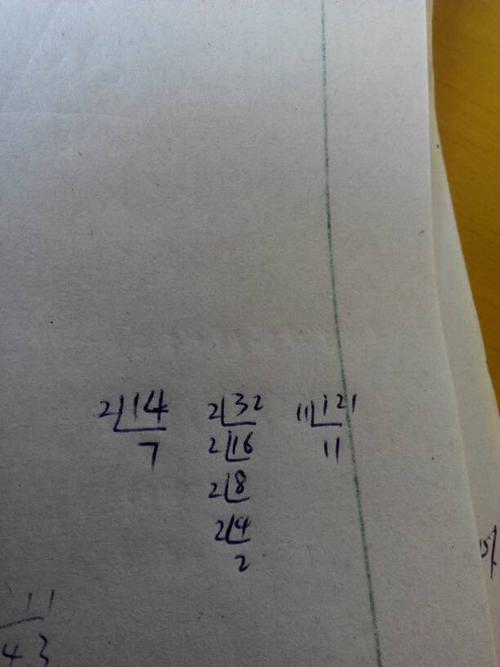 2 14 2 32 11 121
7 2 16 11
2 8
2 4
2
11
43